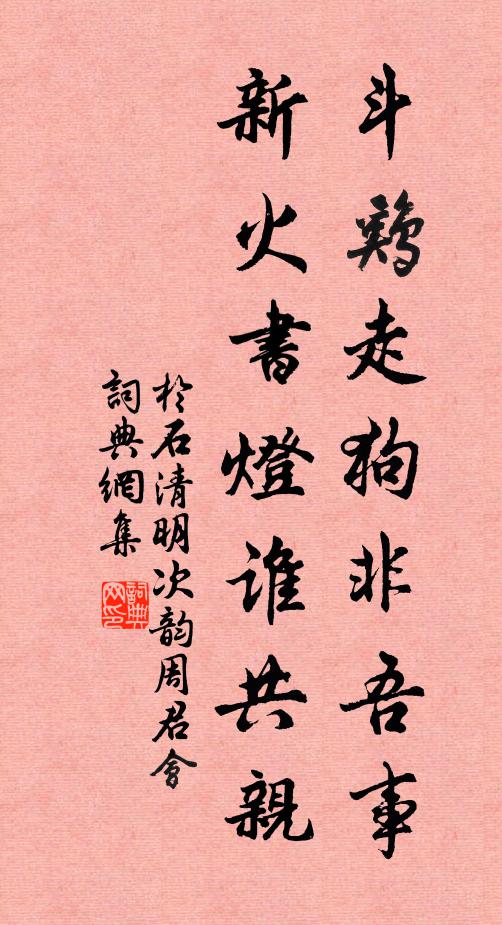 斗鷄走狗非吾事
新火書燈誰共親
於石清明次韵周君會
詞典網集
詞典网印